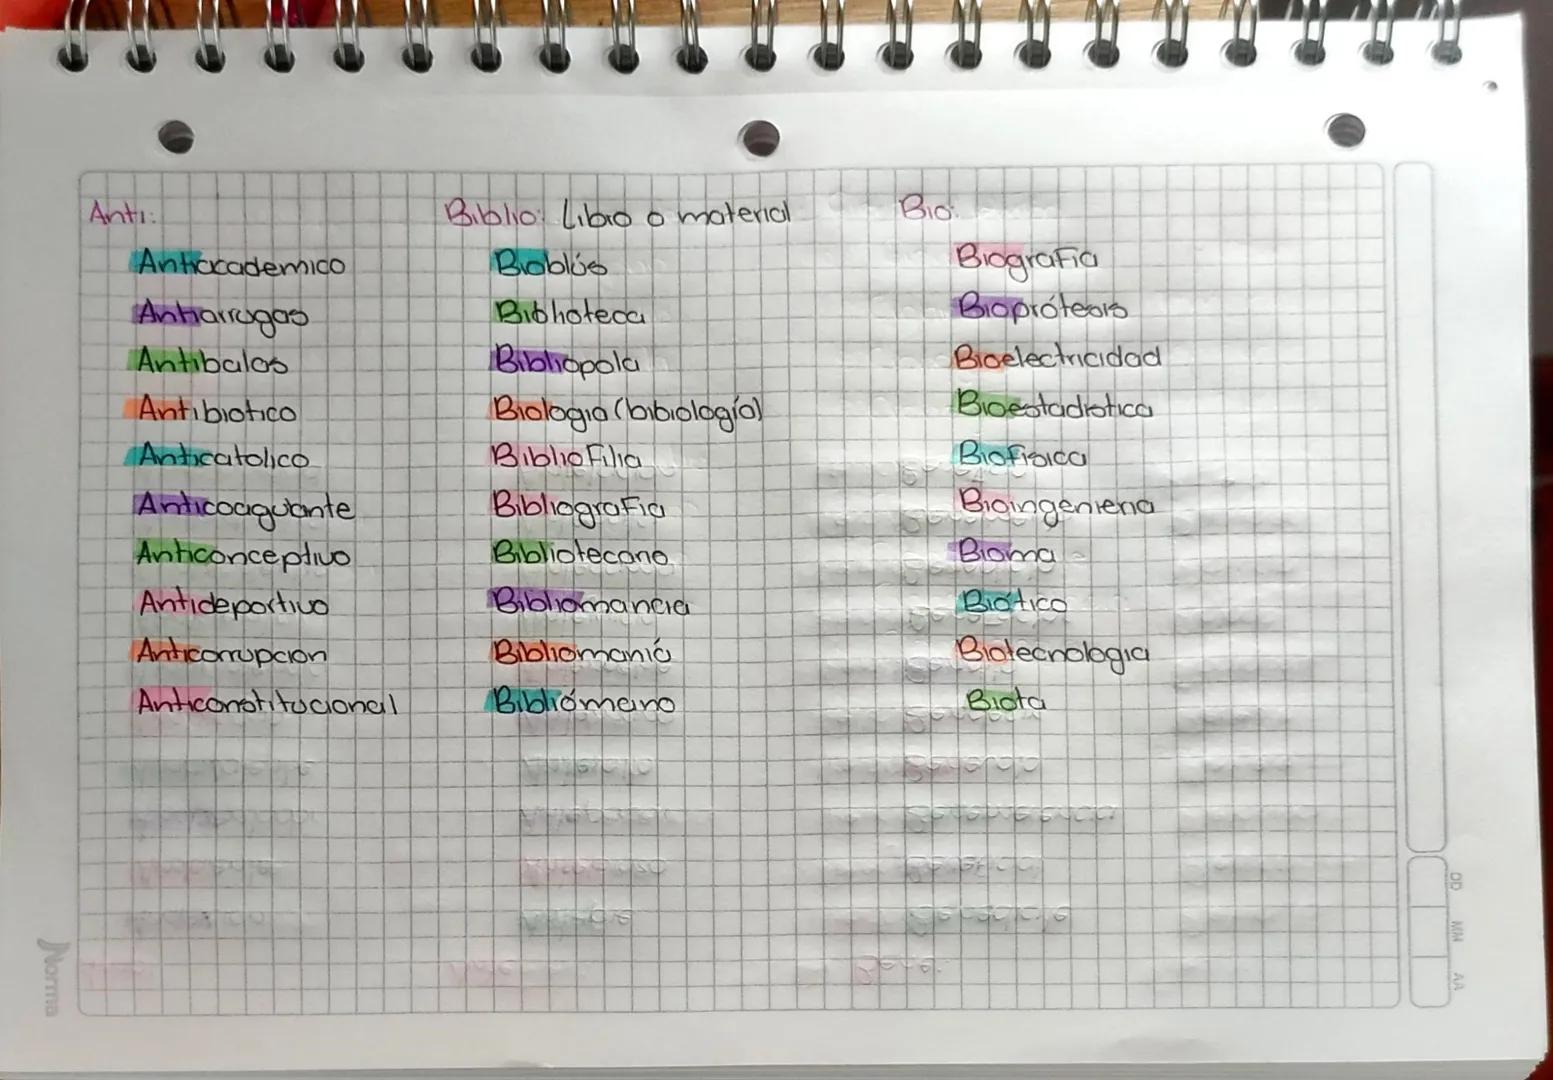 Anti:
Antiacademico
Antiarrugas
Antibalas
Antibiotico
Anticatolico
Anticoagulante
Anticonceptivo
Antideportivo
Anticorrupcion
Anticonstitucional
Biblio: Libro o material
Bioblús
Biblioteca
Bibliopola
Biologia (bibiología)
BiblioFilia
BibliograFia
Bibliotecario
Bibliomancia
Bibliomania
Bibliómano
Bio:
BiograFia
Bioprótesis
Bioelectricidad
Bioestadistica
Biofisica
Bioingenieria
Bioma
Biótico
Biotecnologia
Biota
DD MM AA
Norma